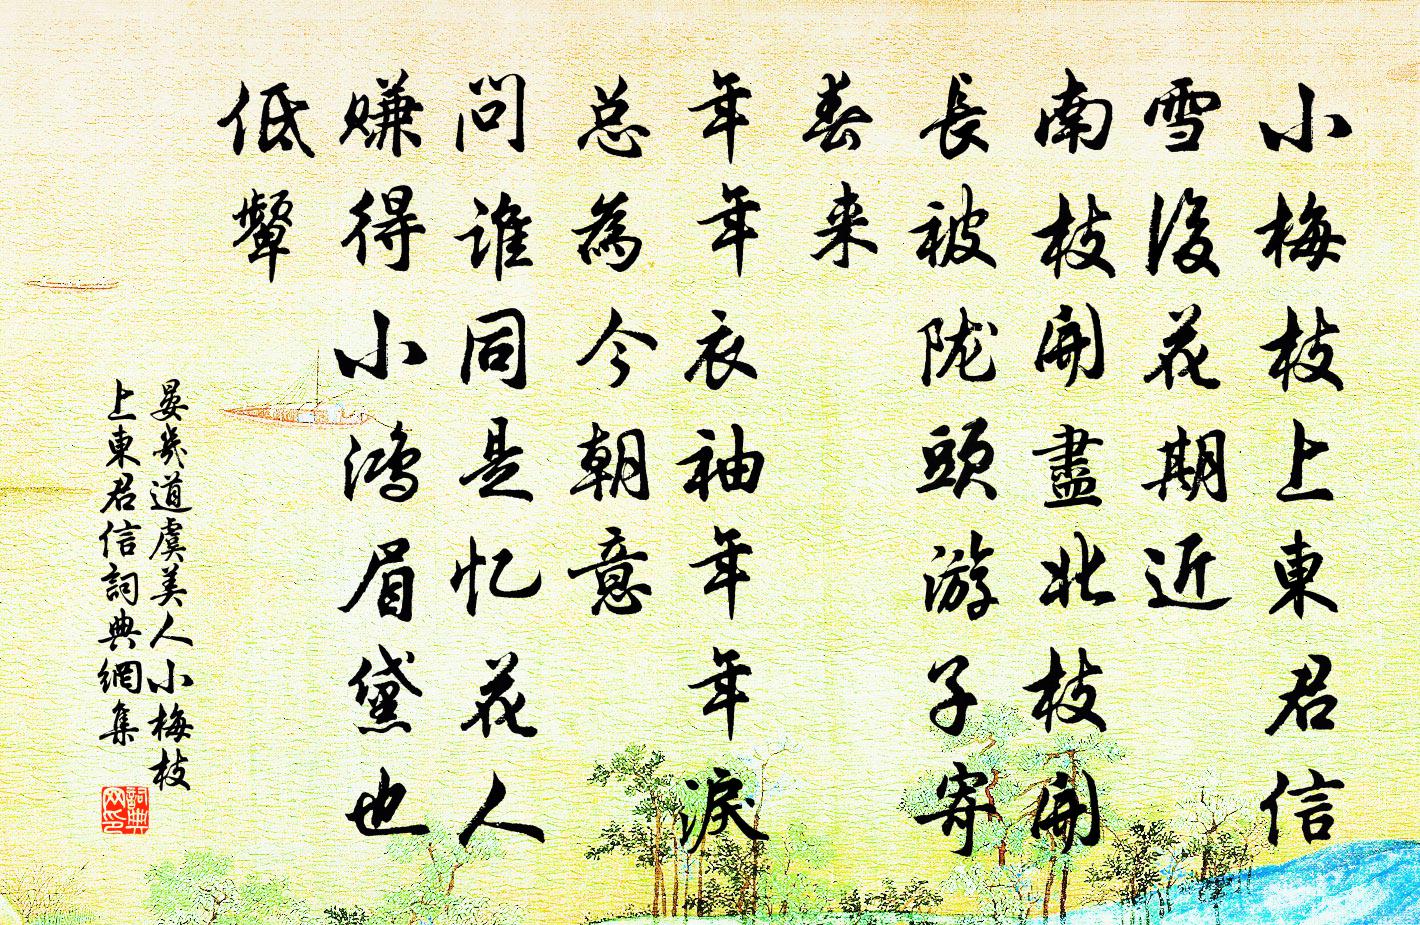 小梅枝上東君信
雪後花期近
南枝開盡北枝開
長被陇頭游子寄
春来
年年衣袖年年淚
总為今朝意
问誰同是忆花人
赚得小鴻眉黛也
低颦
晏幾道虞美人小梅枝
上東君信詞典網集
詞典
网印